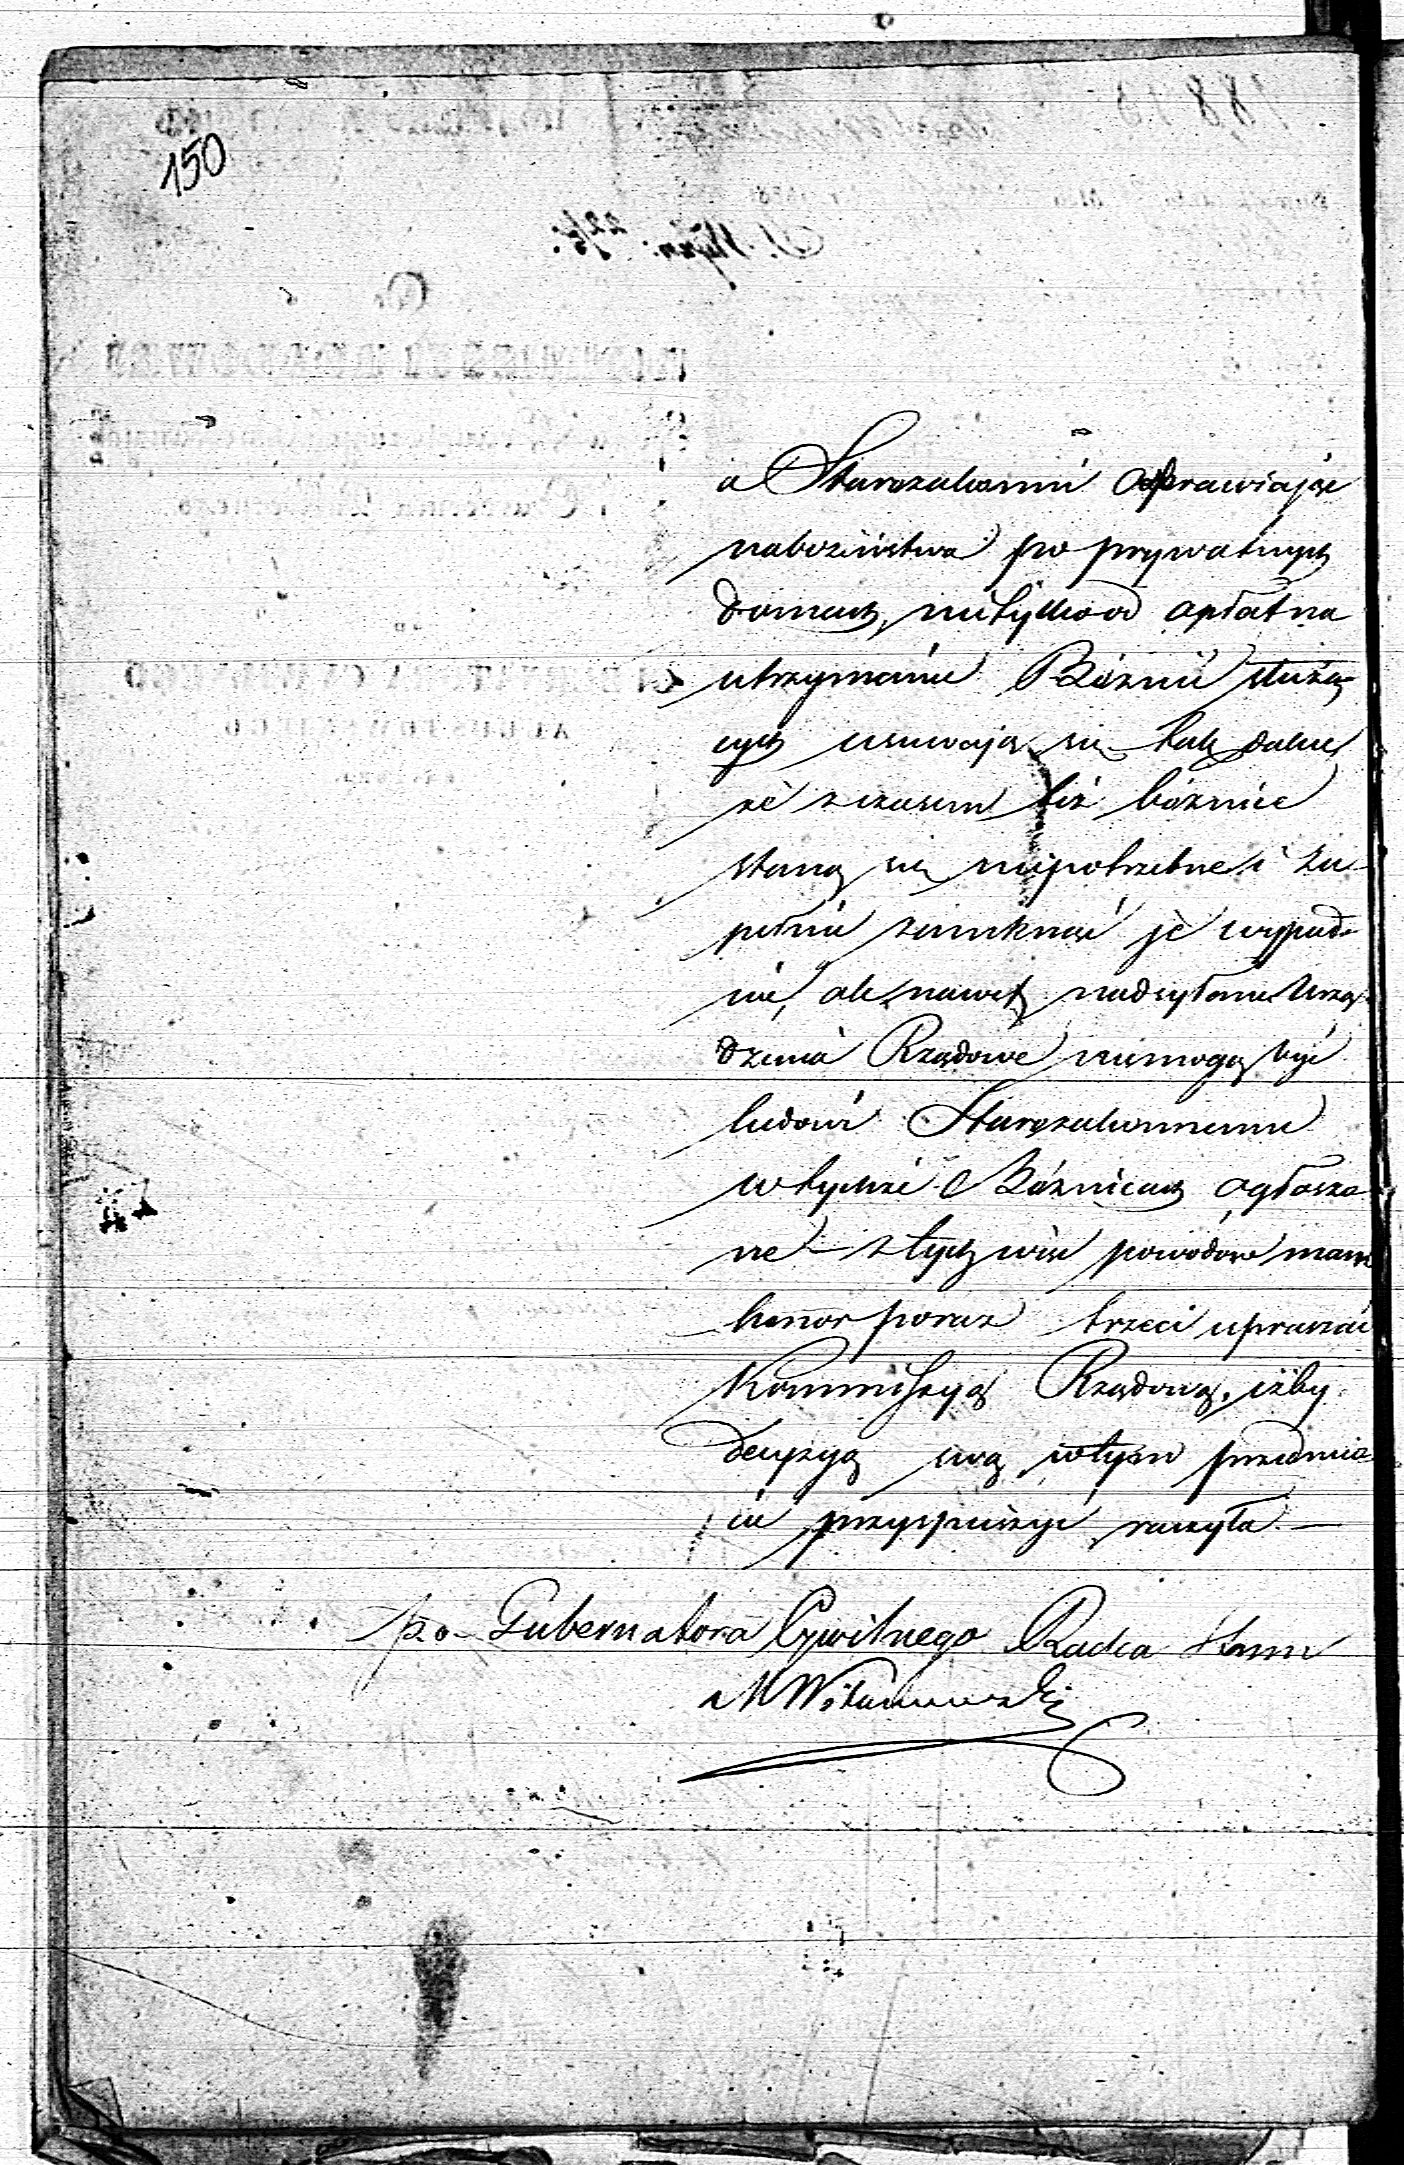 150
a Starozakonni odprawiając
nabożeństwa po prywatnych
domach, nietylko od opłat na
utrzymanie Bóżnic służą-
cych usuwają się tak dalece
że z czasem też bóżnice
staną się niepotrzebne i zu-
pełnie zamknąć je wypad-
nie, ale nawet nadsyłane Urzą-
dzenia Rządowe niemogą być
ludowi Starozakonnemu
w tychże Bóżnicach ogłasza-
ne – z tych więc powodów mam
honor poraz trzeci upraszać
Kommissyą Rządową, iżby
decyzyą swą w tym przedmio-
cie przyspieszyć raczyła. —
p.o. Gubernatora Cywilnego Radca Stanu